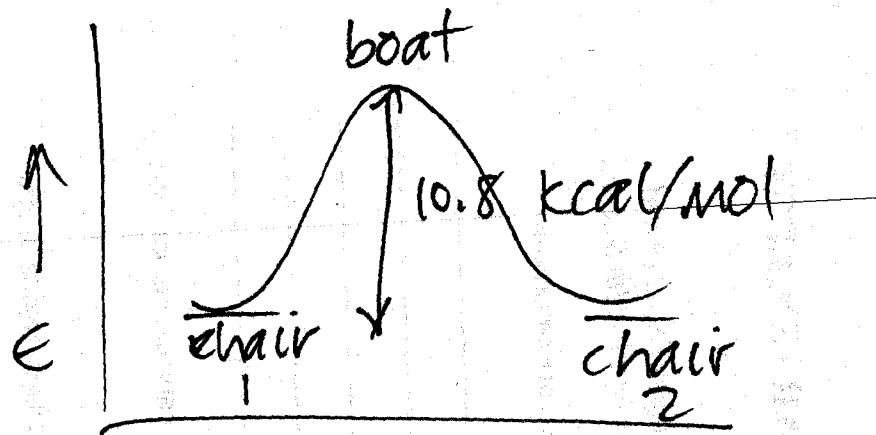 boat
10.8 kcal/mol
E
chair
1
chair
2